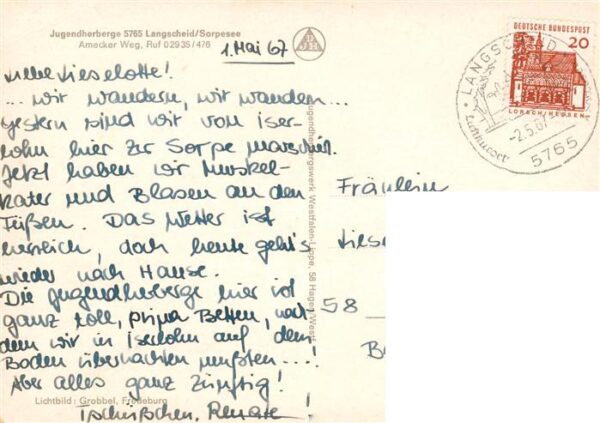 Jugendherberge 5765 Langscheid/Sorpesee
Amecker Weg, Ruf 02935/476
1. Mai 67
Liebe Lieselotte!
... wir wandern, wir wandern...
gestern sind wir von Iser-
lohn hier zur Sorpe marschiert.
Jetzt haben wir Muskel-
kater und Blasen an den
Füßen. Das Wetter ist
herrlich, doch heute geht's
wieder nach Hause.
Die Jugendherberge hier ist
ganz toll, prima Betten, nach-
dem wir in Iserlohn auf dem
Boden übernachten mußten...!
Aber alles ganz zünftig!
Tschüßchen, Renate!
Lichtbild: Grobbel, Fredeburg
Jugendherbergswerk Westfalen-Lippe, 58 Hagen/Westf.
DEUTSCHE BUNDESPOST
20
LORSCH/HESSEN
LANGSCHEID
Luftkurort
-2.5.67
5765
Fräulein
Lies
58